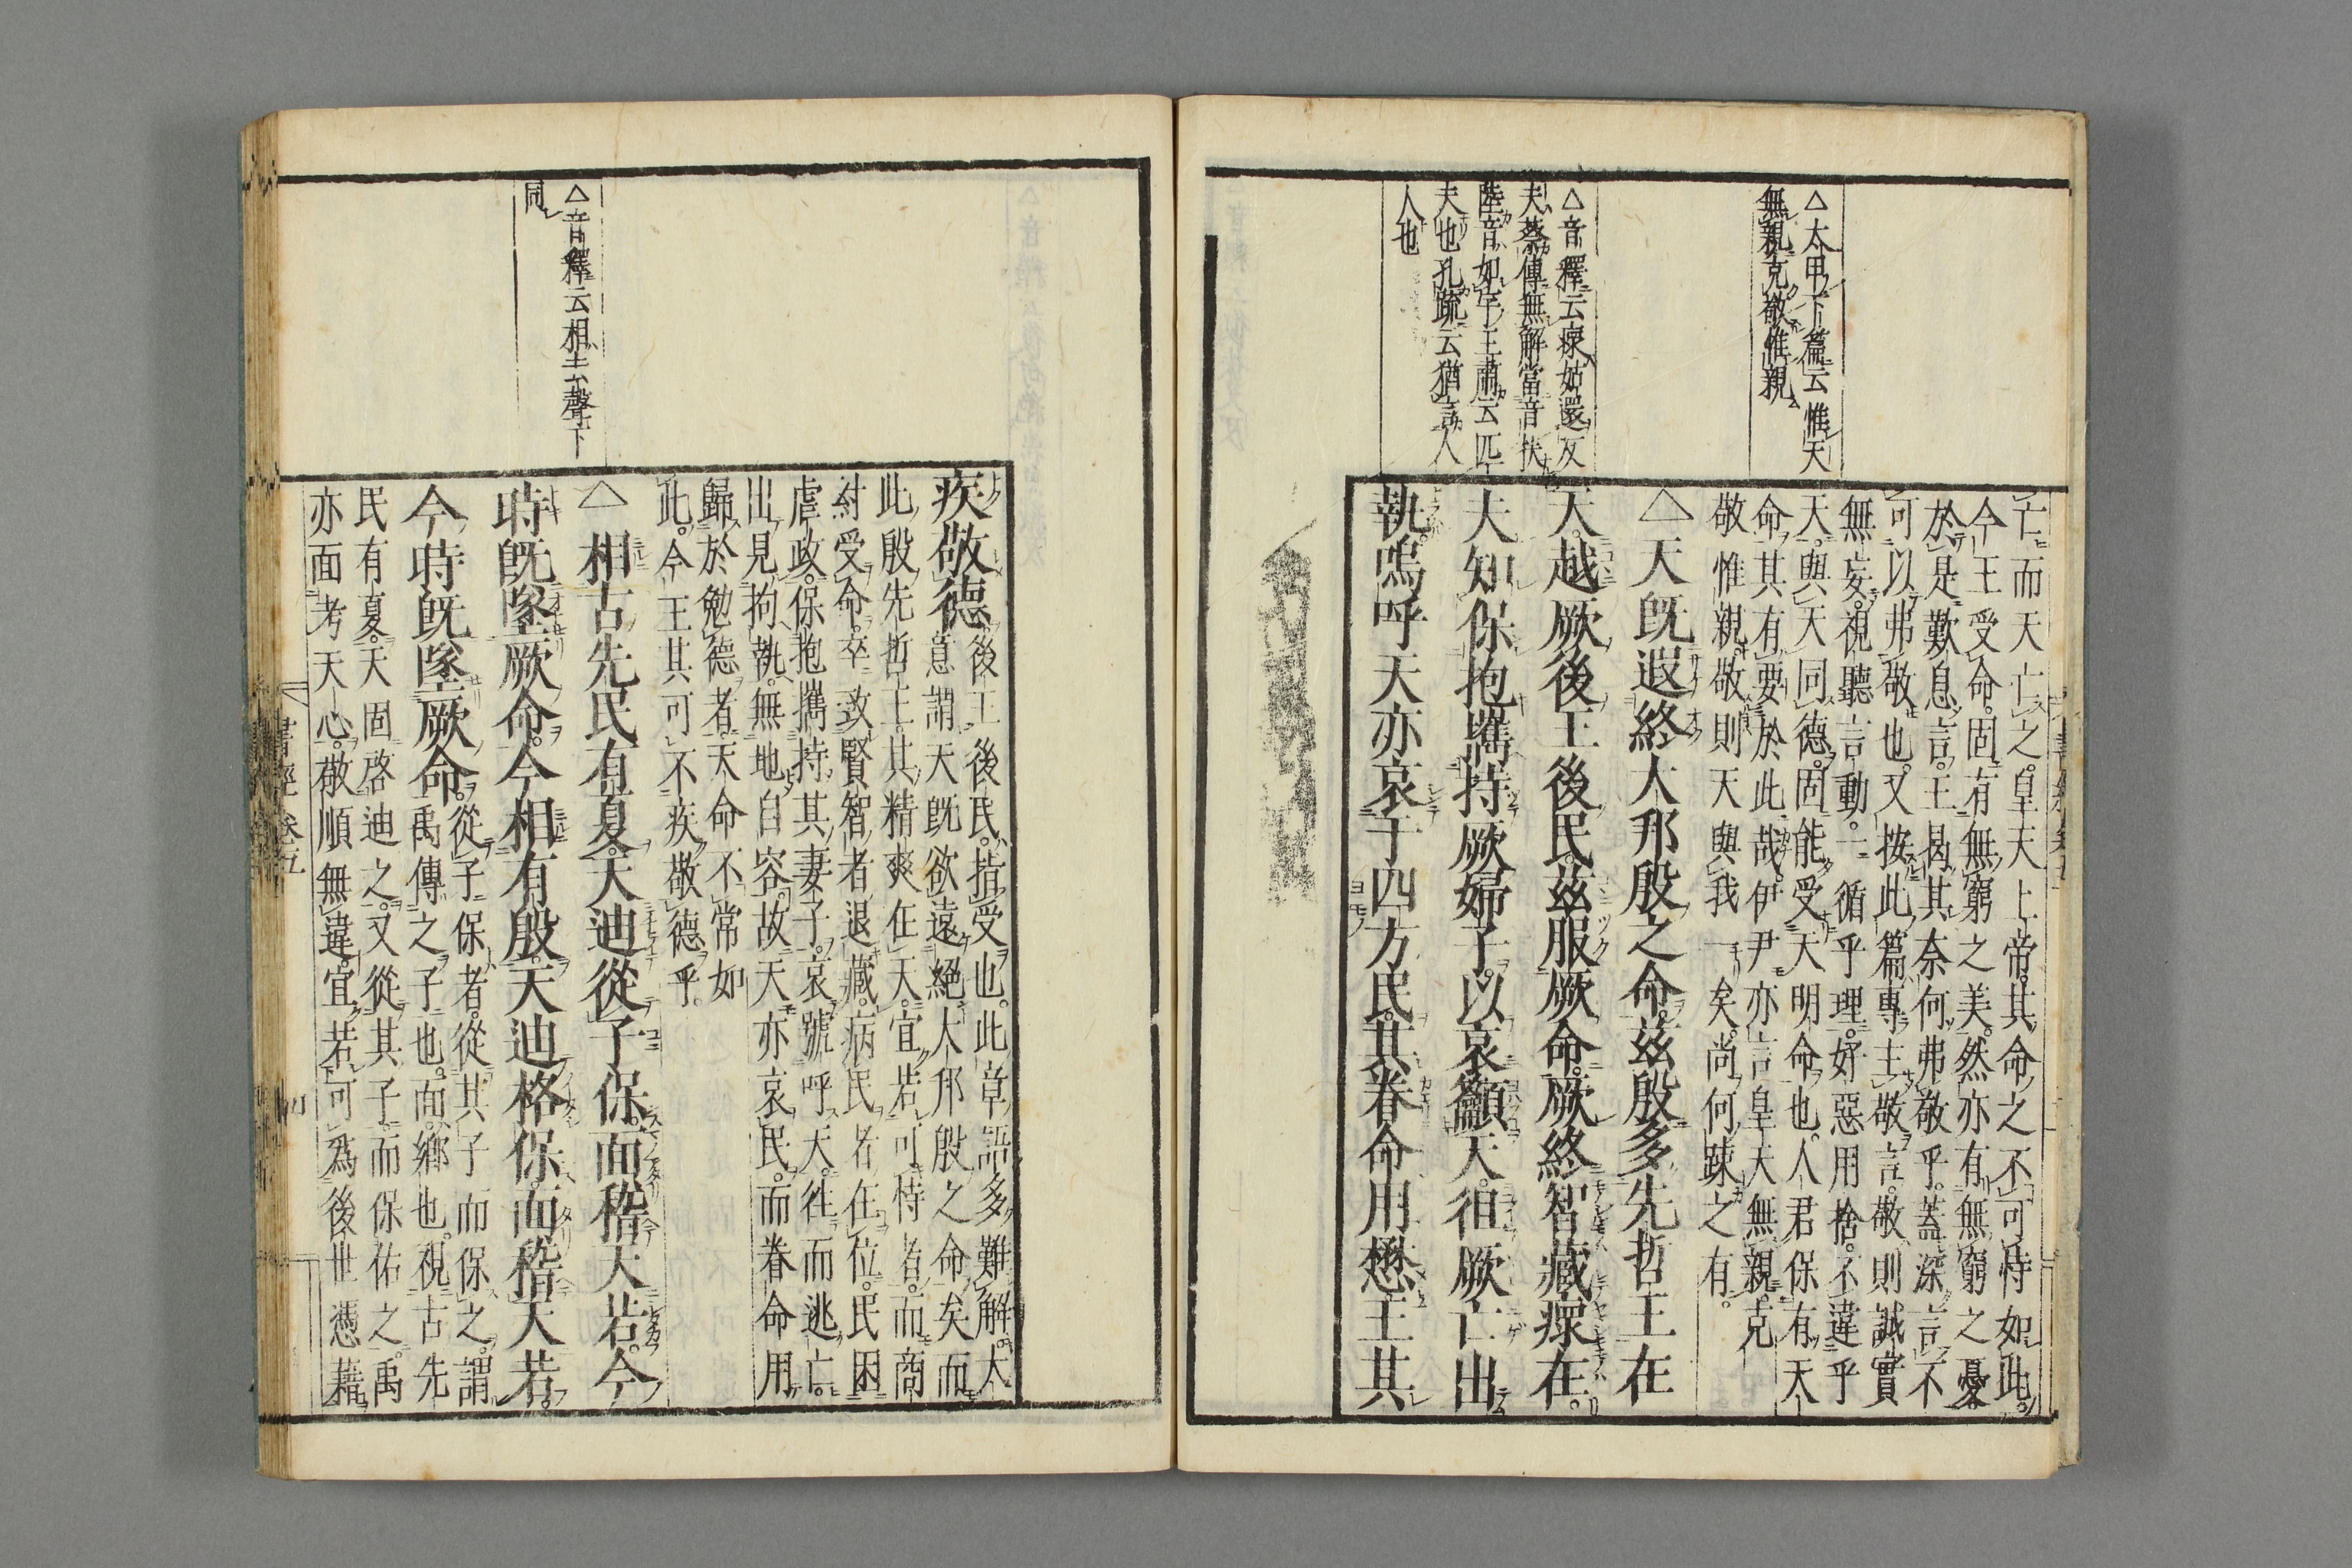 △太甲下篇云惟天
無親克敬惟親
△音釋云瘝姑還反
夫蔡傳無解當音扶
陸音如字王肅云匹
夫也孔疏云猶言人
人也
亡而天亡之。皇天上帝。其命之不可恃如此。
今王受命。固有無窮之美。然亦有無窮之憂。
於是歎息言。王曷其奈何弗敬乎。蓋深言不
可以弗敬也。又按此篇專主敬言。敬則誠實
無妄。視聽言動。一循乎理。好惡用捨。不違乎
天。與天同德。固能受天明命也。人君保有天
命。其有要於此哉。伊尹亦言皇天無親。克
敬惟親。敬則天與我一矣。尚何踈之有。
△天旣遐終大邦殷之命。玆殷多先哲王在
天。越厥後王後民。玆服厥命。厥終智藏瘝在。
夫知保抱攜持厥婦子。以哀籲天。徂厥亡出
執。嗚呼天亦哀于四方民。其眷命用懋。王其
△音釋云相去聲下
同
疾敬德。後王後民。指受也。此章語多難解。大
意謂天旣欲遠絶大邦殷之命矣。而
此殷先哲王。其精爽在天。宜若可恃者。而商
紂受命。卒致賢智者退藏。病民者在位。民困
虐政。保抱攜持其妻子。哀號呼天。徃而逃亡。
出見拘執。無地自容。故天亦哀民。而眷命用
歸於勉德者。天命不常如
此。今王其可不疾敬德乎。
△相古先民有夏。天迪從子保。面稽天若。今
時旣墜厥命。今相有殷。天迪格保。面稽天若。
今時旣墜厥命。從子保者。從其子而保之。謂
禹傳之子也。面。鄉也。視古先
民有夏。天固啓迪之。又從其子而保佑之。禹
亦面考天心。敬順無違。宜若可爲後世憑藉
書經卷五
四